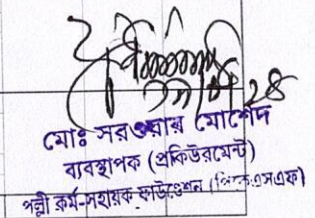 ২৪
মোঃ সরওয়ার মোর্শেদ
ব্যবস্থাপক (প্রকিউরমেন্ট)
পল্লী কর্ম-সহায়ক ফাউন্ডেশন (পিকেএসএফ)